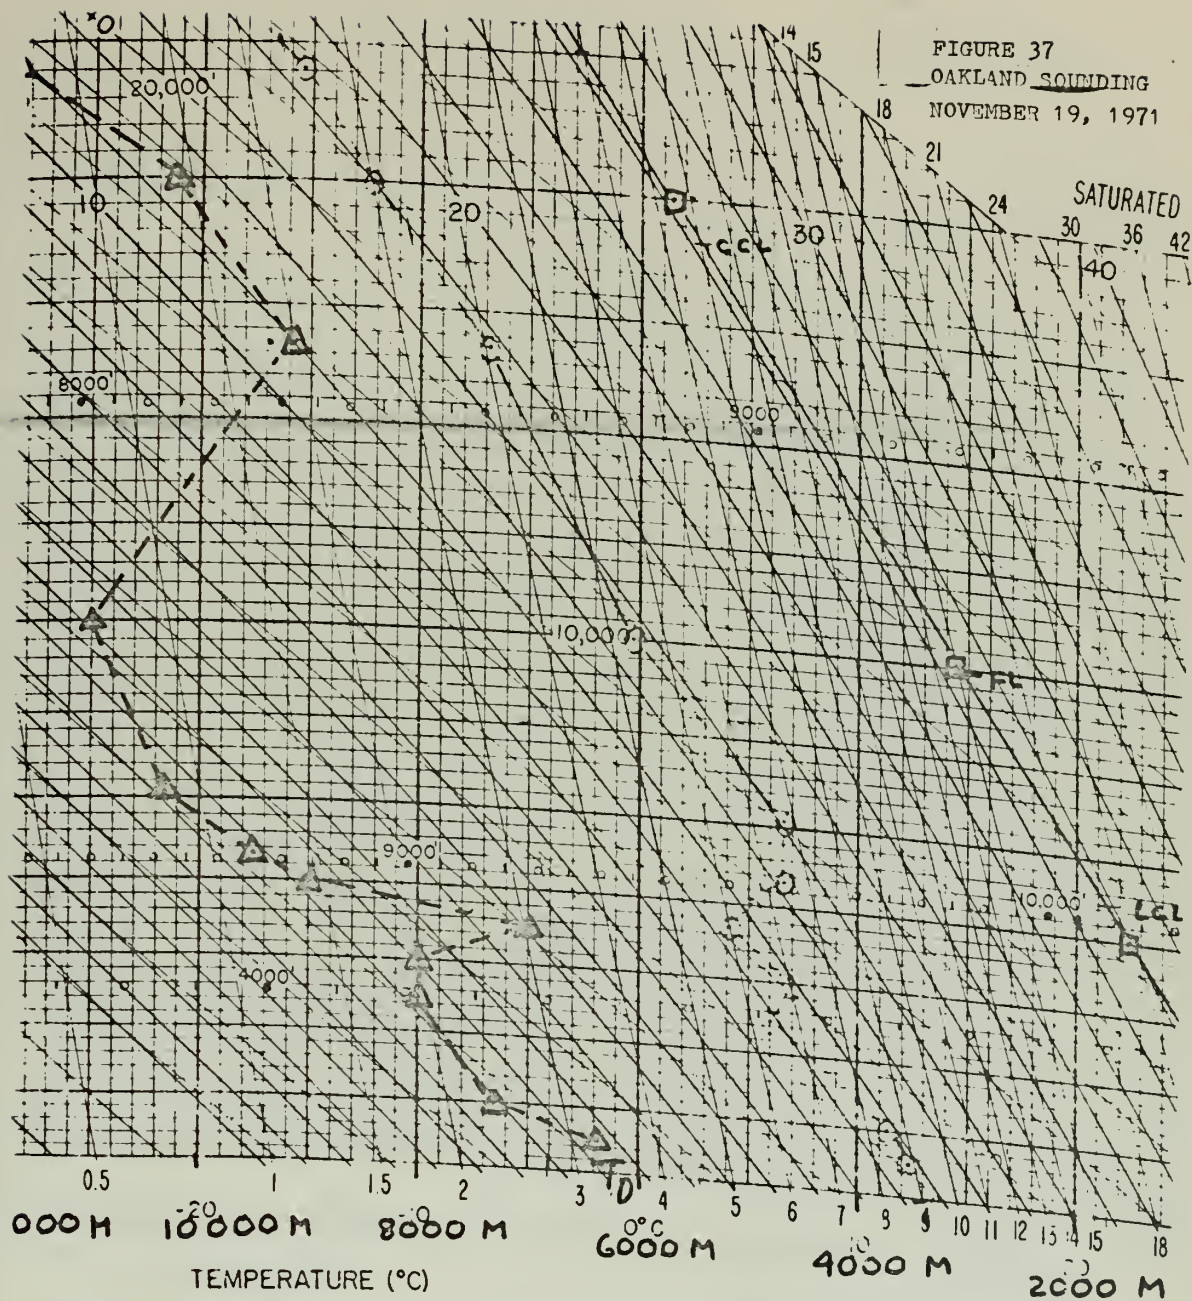 FIGURE 37
OAKLAND SOUNDING
NOVEMBER 19, 1971
0
14
15
18
21
24
SATURATED
30
36
42
20,000'
10
20
CCL
30
40
8000'
9000'
10,000'
FL
9000'
10,000'
LCL
4000'
TD
0.5
1
1.5
2
3
4
5
6
7
8
9
10
11
12
13
14
15
18
-20
0°C
10
000 M
10000 M
8000 M
6000 M
4000 M
2000 M
TEMPERATURE (°C)